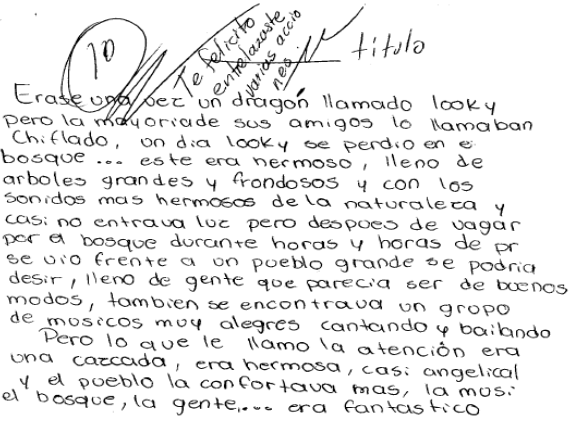 10
Te felicito
entrelazaste
varias accio
nes
título
Erase una vez un dragón llamado looky
pero la mayoria de sus amigos lo llamaban
Chiflado, un dia looky se perdio en e
bosque ... este era hermoso, lleno de
arboles grandes y frondosos y con los
sonidos mas hermosos de la naturaleza y
casi no entrava luz pero despues de vagar
por el bosque durante horas y horas de pr
se vio frente a un pueblo grande se podria
desir, lleno de gente que parecia ser de buenos
modos, tambien se encontrava un grupo
de musicos muy alegres cantando y bailando
Pero lo que le llamo la atención era
una cazcada, era hermosa, casi angelical
y el pueblo la confortava mas, la musi
el bosque, la gente,... era fantastico